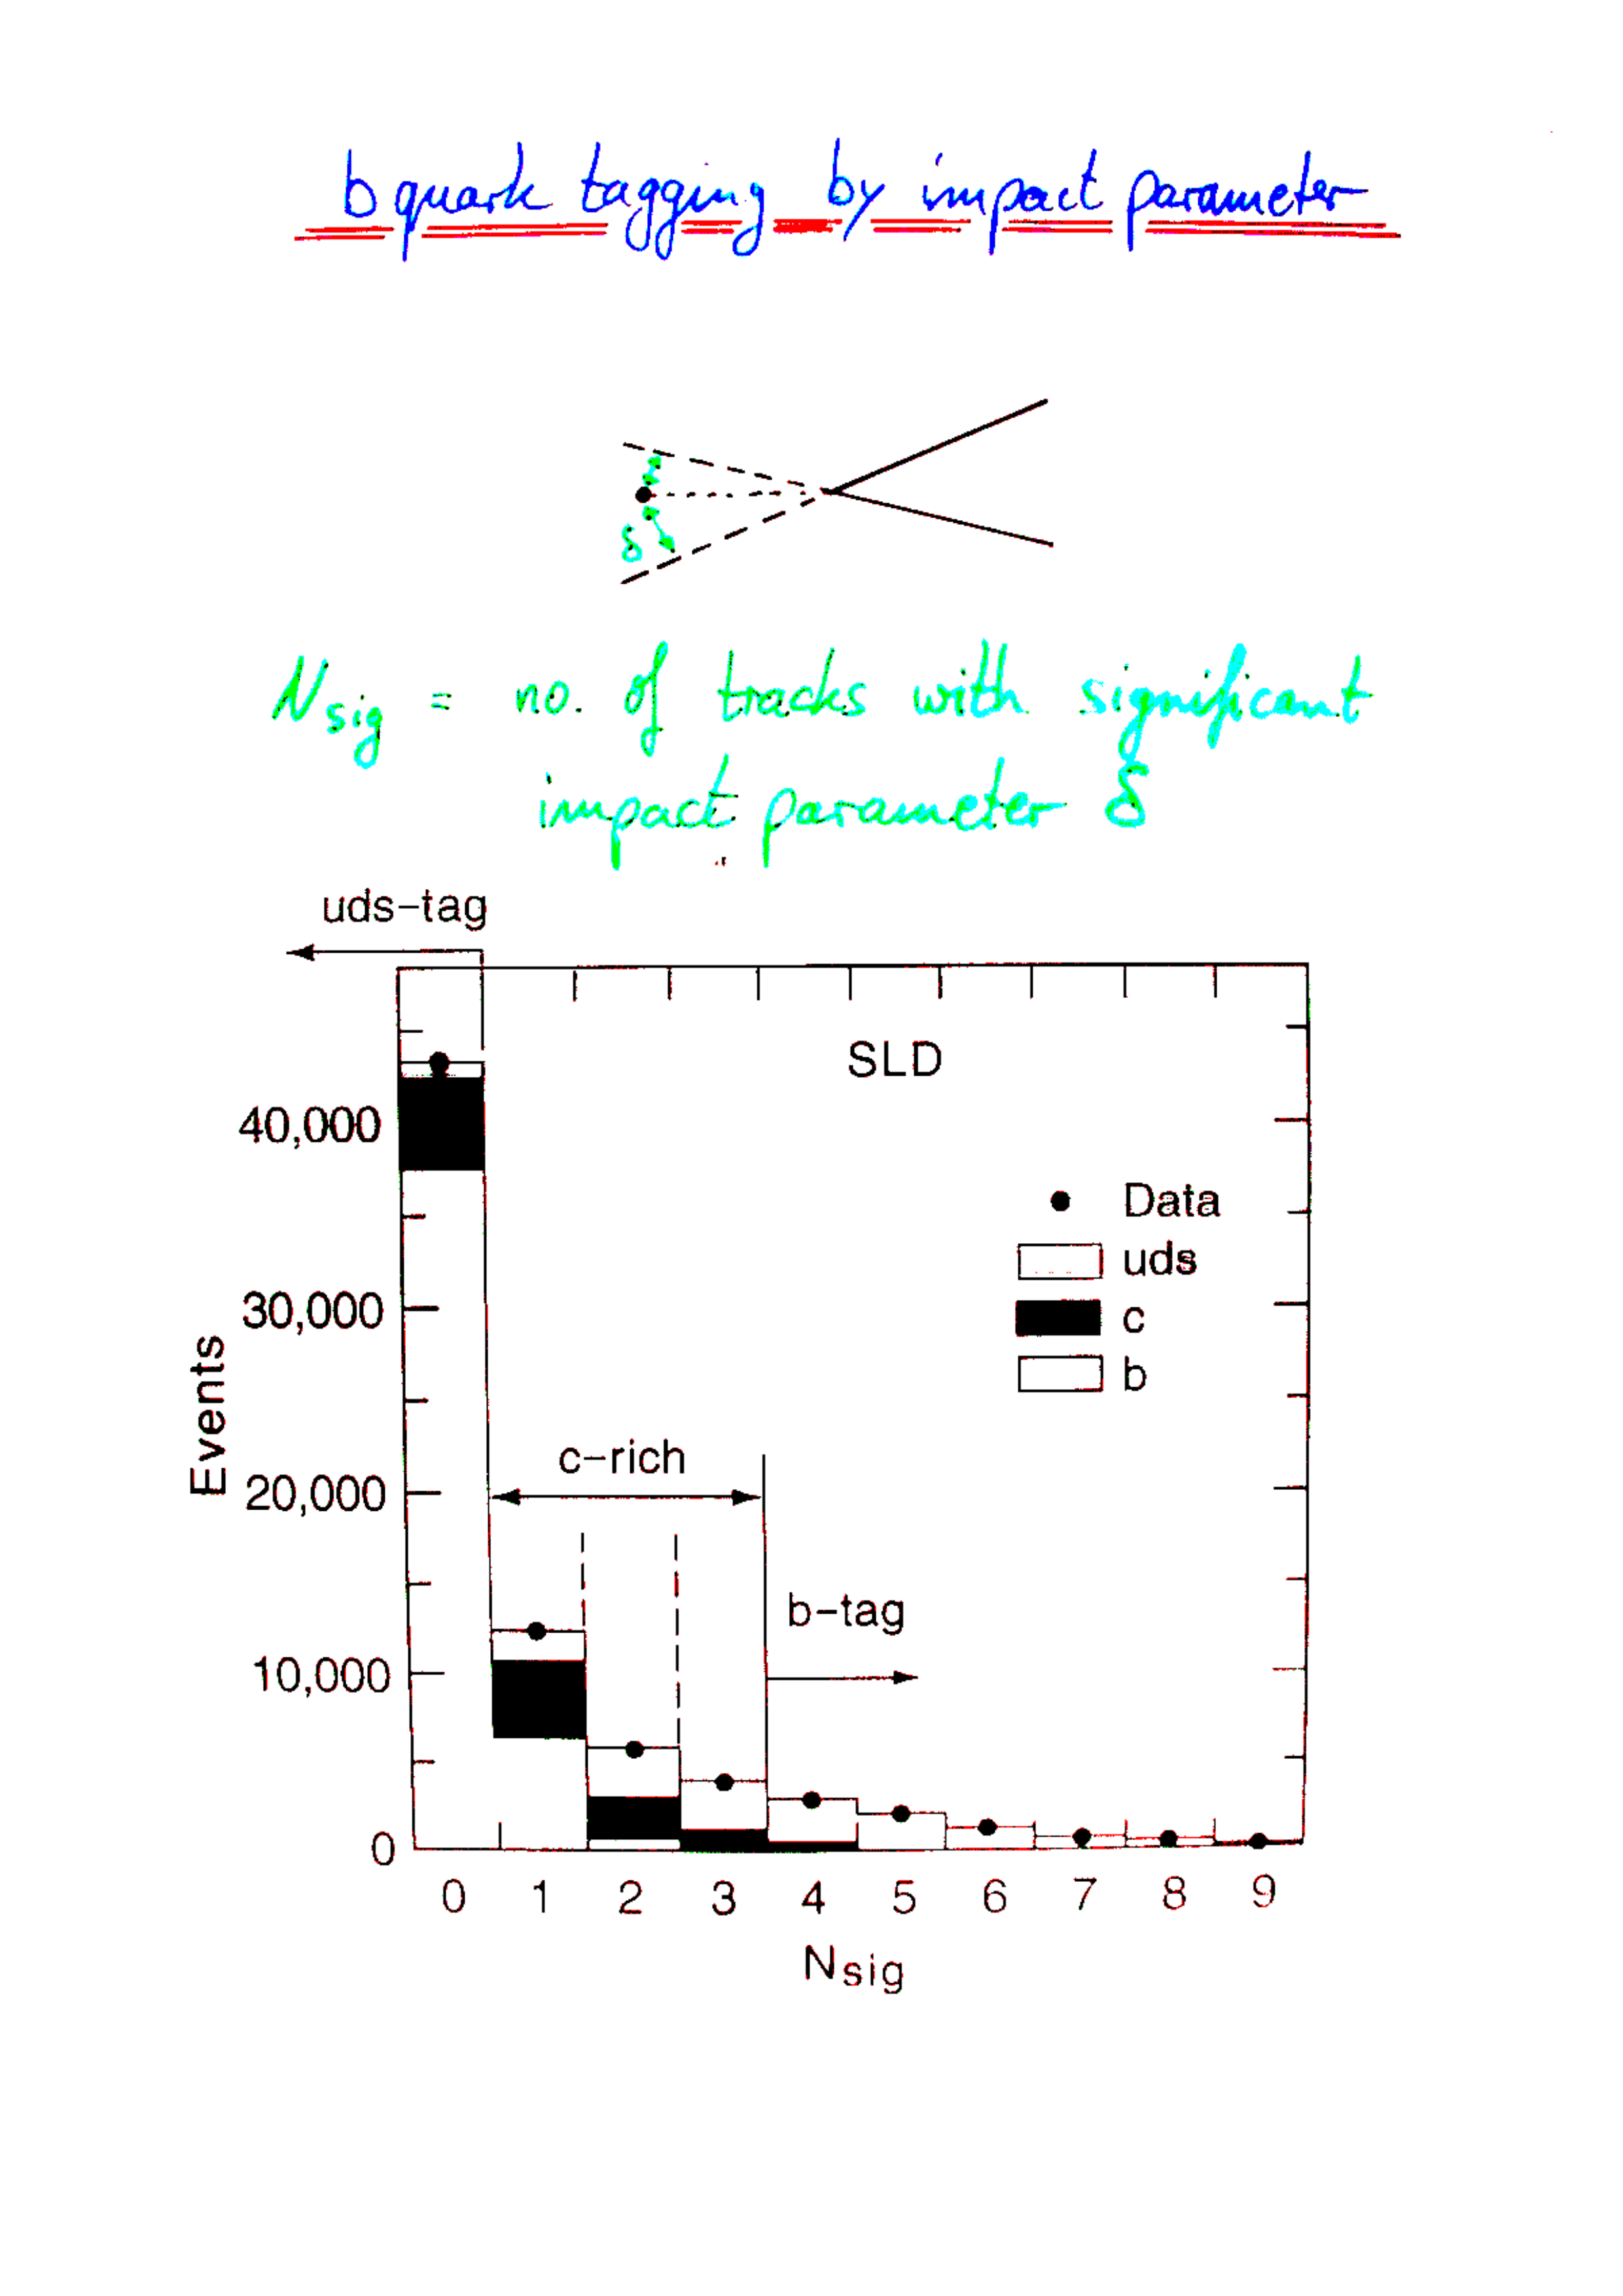 b quark tagging by impact parameter
δ
Nsig = no. of tracks with significant
impact parameter δ
uds-tag
SLD
40,000
Data
uds
30,000
c
b
Events
c-rich
20,000
b-tag
10,000
0
0 1 2 3 4 5 6 7 8 9
Nsig